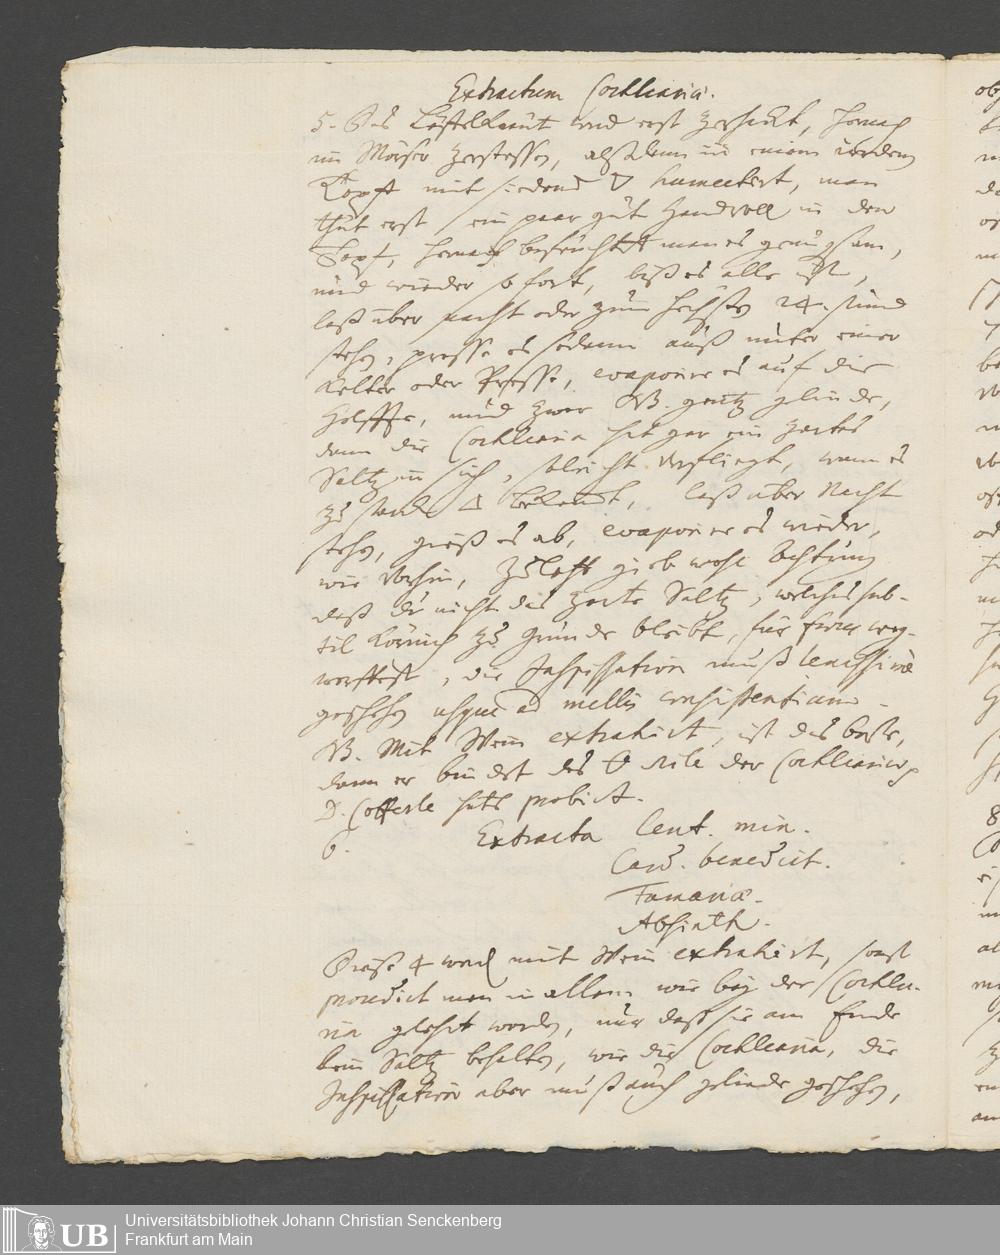 Extractum Cochleariæ.
5. Das Löffelkraut wird erst zerhackt, hernach
im Mörser zerstossen, alßdann in einem irrdenen
Topff mit siedend 🜄 humectirt, man
thut erst ein paar gut Handvoll in den
Topf, hernach befeuchtet man es genugsam,
und wieder so fort, biß es alle ist,
laß über nacht oder zum höchsten 24. stund
stehen, presse es sodann auß unter einer
Kelter oder Presse, evaporire es auf die
Helffte, und zwar NB. gantz gelinde,
dann die Cochlearia hat gar ein zartes
Saltz in sich, so leicht verfliegt, wann es
zu starck 🜂 bekommt, laß über Nacht
stehen, gieß es ab, evaporire es wieder,
wie vorhin, zuletzt gieb wohl Achtung
daß du nicht das zarte Saltz, welches sub-
til körnich zu Grunde bleibt, für weg-
werffest, die Inspissation muß lenissime
geschehen usque ad mellis consistentiam.
NB. Mit Wein extrahirt, ist das beste,
dann er bindet das vol. der Cochleariæ,
D. hats probirt.
6. Extracta Cent. min.
Card. benedict.
Fumariæ.
Absinth.
Diese 4 werden mit Wein extrahirt, sonst
procedirt man in allem wie bey der Cochlea-
ria gelehrt worden, nur daß sie am Ende
kein Saltz behalten, wie die Cochlearia, die
Inspissation aber muß auch gelinde geschehen,
Universitätsbibliothek Johann Christian Senckenberg
Frankfurt am Main
UB